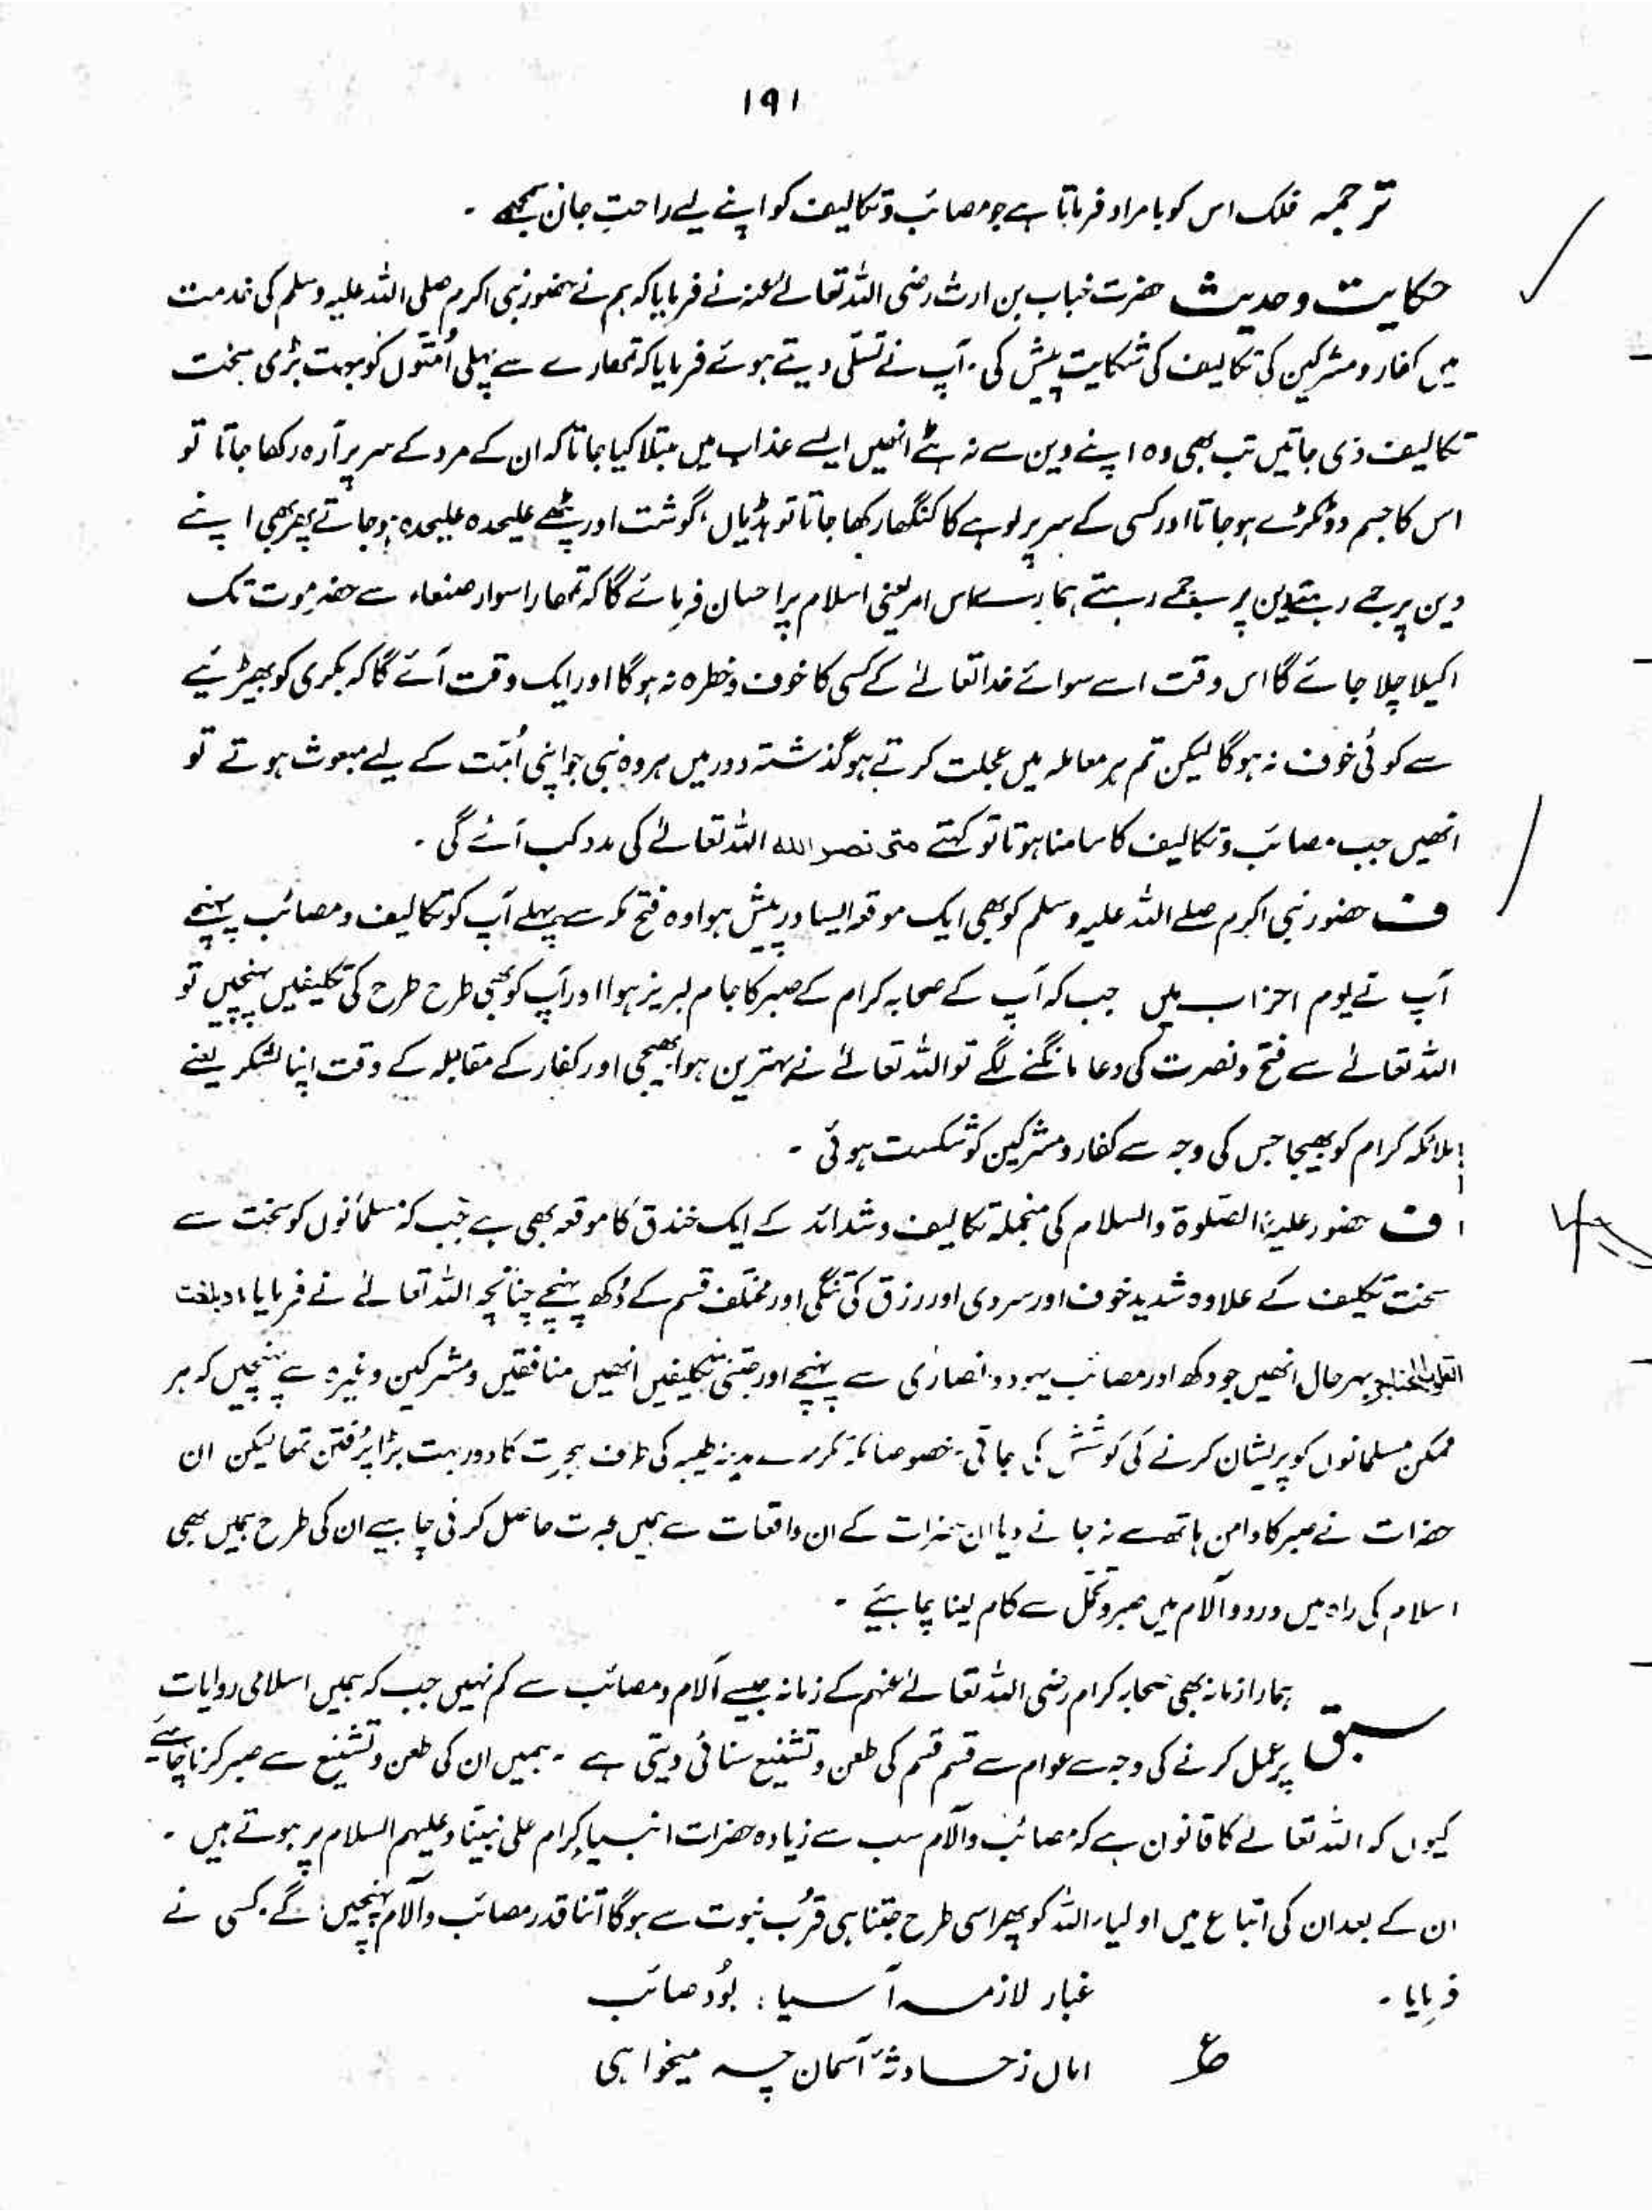 ۱۹۱
ترجمہ فلک اس کو بامراد فرماتا ہے جو مصائب و تکالیف کو اپنے لیے راحتِ جان سمجھے ۔
حکایت و حدیث حضرت خباب بن ارث رضی اللہ تعالےٰ عنہ نے فرمایا کہ ہم نے حضور نبی اکرم صلی اللہ علیہ وسلم کی خدمت
میں کفار و مشرکین کی تکالیف کی شکایت پیش کی ۔ آپ نے تسلّی دیتے ہوئے فرمایا کہ تمھارے سے پہلی اُمتوں کو بہت بڑی سخت
تکالیف دی جاتیں تب بھی وہ اپنے دین سے نہ ہٹے انھیں ایسے عذاب میں مبتلا کیا جاتا کہ ان کے مرد کے سر پر آرہ رکھا جاتا تو
اس کا جسم دو ٹکڑے ہو جاتا اور کسی کے سر پر لوہے کا کنگھار رکھا جاتا تو ہڈیاں، گوشت اور پٹھے علیحدہ علیحدہ ہو جاتے پھر بھی اپنے
دین پر جمے رہتے دین پر جمے رہتے ہمارے اس امر یعنی اسلام پر احسان فرمائے گا کہ تمھارا سوار صنعاء سے حضرموت تک
اکیلا چلا جائے گا اس وقت اسے سوائے خدا تعالےٰ کے کسی کا خوف و خطرہ نہ ہوگا اور ایک وقت آئے گا کہ بکری کو بھیڑیئے
سے کوئی خوف نہ ہوگا لیکن تم ہر معاملہ میں عجلت کرتے ہو گذشتہ دور میں ہر وہ نبی جو اپنی اُمّت کے لیے مبعوث ہوتے تو
انھیں جب مصائب و تکالیف کا سامنا ہوتا تو کہتے متیٰ نصر اللہ اللہ تعالےٰ کی مدد کب آئے گی ۔
ف حضور نبی اکرم صلے اللہ علیہ وسلم کو بھی ایک موقعہ ایسا درپیش ہوا وہ فتح مکہ سے پہلے آپ کو تکالیف و مصائب پہنچے
آپ نے یوم احزاب میں جب کہ آپ کے صحابہ کرام کے صبر کا جام لبریز ہوا اور آپ کو بھی طرح طرح کی تکلیفیں پہنچیں تو
اللہ تعالےٰ سے فتح و نصرت کی دعا مانگنے لگے تو اللہ تعالےٰ نے بہترین ہوا بھیجی اور کفار کے مقابلہ کے وقت اپنا لشکر یعنے
ملائکہ کرام کو بھیجا جس کی وجہ سے کفار و مشرکین کو شکست ہوئی ۔
ف حضور علیہ الصلوۃ والسلام کی منجملہ تکالیف و شدائد کے ایک خندق کا موقعہ بھی ہے جب کہ مسلمانوں کو سخت سے
سخت تکلیف کے علاوہ شدید خوف اور سردی اور رزق کی تنگی اور مختلف قسم کے دُکھ پہنچے چنانچہ اللہ تعالےٰ نے فرمایا، وبلغت
القلوب الحناجر بہرحال انھیں جو دکھ اور مصائب یہود و نصارٰی سے پہنچے اور جتنی تکلیفیں انھیں منافقین و مشرکین وغیرہ سے پہنچیں کہ ہر
ممکن مسلمانوں کو پریشان کرنے کی کوشش کی جاتی ۔ خصوصا مکہ مکرمہ سے مدینہ طیبہ کی طرف ہجرت کا دور بہت بڑا پُرفتن تھا لیکن ان
حضرات نے صبر کا دامن ہاتھ سے نہ جانے دیا ان حضرات کے ان واقعات سے ہمیں عبرت حاصل کرنی چاہیے ان کی طرح ہمیں بھی
اسلام کی راہ میں درد و آلام میں صبر و تحمّل سے کام لینا چاہئیے ۔
ہمارا زمانہ بھی صحابہ کرام رضی اللہ تعالےٰ عنہم کے زمانہ جیسے آلام و مصائب سے کم نہیں جب کہ ہمیں اسلامی روایات
سبق پر عمل کرنے کی وجہ سے عوام سے قسم قسم کی طعن و تشنیع سنائی دیتی ہے ۔ ہمیں ان کی طعن و تشنیع سے صبر کرنا چاہیے
کیوں کہ اللہ تعالےٰ کا قانون ہے کہ مصائب و آلام سب سے زیادہ حضرات انبیاء کرام علی نبیّنا و علیہم السلام پر ہوتے ہیں ۔
ان کے بعد ان کی اتباع میں اولیاء اللہ کو پھر اسی طرح جتنا ہی قُرب نبوت سے ہوگا اتنا قدر مصائب و آلام پہنچیں گے ۔ کسی نے
فرمایا ۔ غبار لازمہ آسیا، بُود صائب
ع امال ز حادثۂ آسمان چہ میخواہی